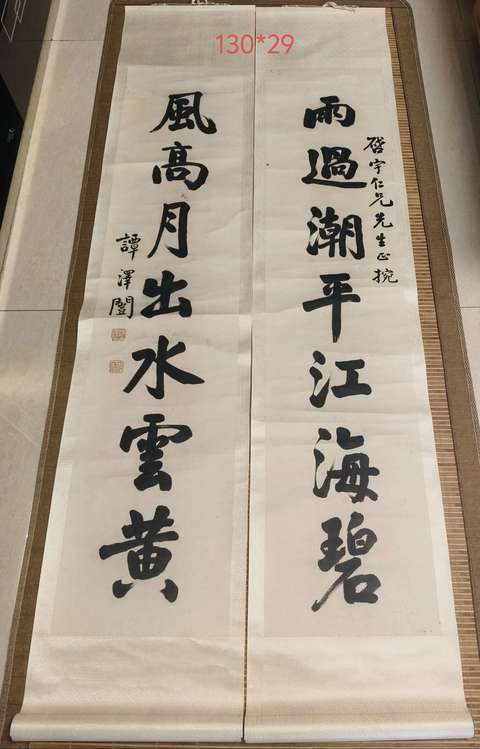 130*29
啓宇仁兄先生正捥
雨過潮平江海碧
風高月出水雲黄
譚澤闓